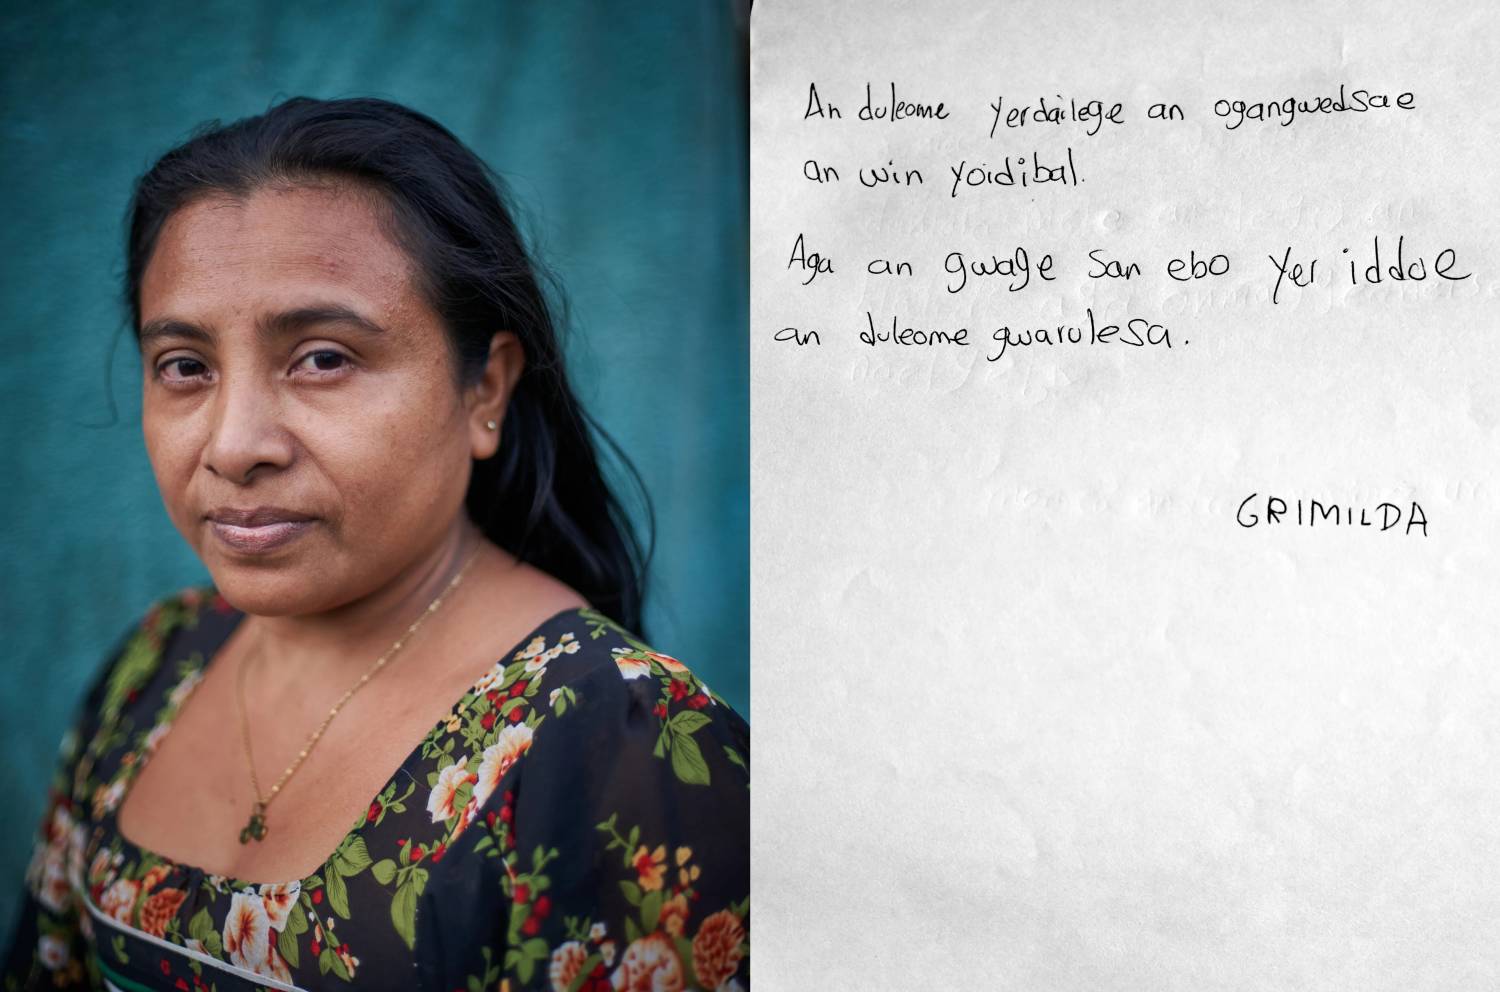 An duleome yerdailege an ogangwedsae
an win yoidibal.
Aga an gwage san ebo yer iddoe
an duleome gwarulesa.
GRIMILDA